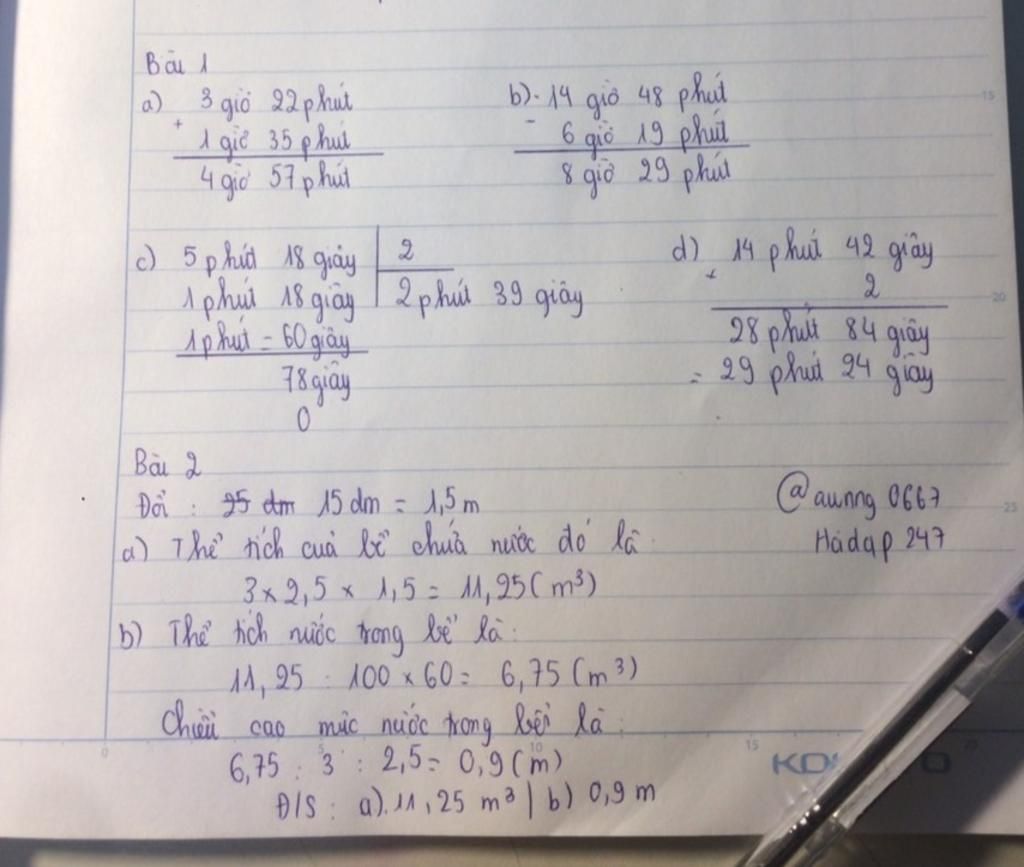 Bài 1
a) 3 giờ 22 phút
+ 1 giờ 35 phút
4 giờ 57 phút
b) 14 giờ 48 phút
- 6 giờ 19 phút
8 giờ 29 phút
c) 5 phút 18 giây | 2
1 phút 18 giây | 2 phút 39 giây
1 phút = 60 giây
78 giây
0
d) 14 phút 42 giây
× 2
28 phút 84 giây
= 29 phút 24 giây
Bài 2
Đổi : 25 dm 15 dm = 1,5 m
a) Thể tích của bể chứa nước đó là
3 × 2,5 × 1,5 = 11,25 (m³)
b) Thể tích nước trong bể là :
11,25 : 100 × 60 = 6,75 (m³)
Chiều cao mức nước trong bể là :
6,75 : 3 : 2,5 = 0,9 (m)
Đ/S : a) 11,25 m³ | b) 0,9 m
@aunng 0667
Hỏidap 247
15
20
25
0
5
10
15
20